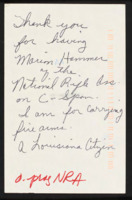 Thank you
for having
Marion Hammer
of the
National Rifle Ass
on C-Span.
I am for carrying
fire arms.
A Louisiana Citizen
NRA